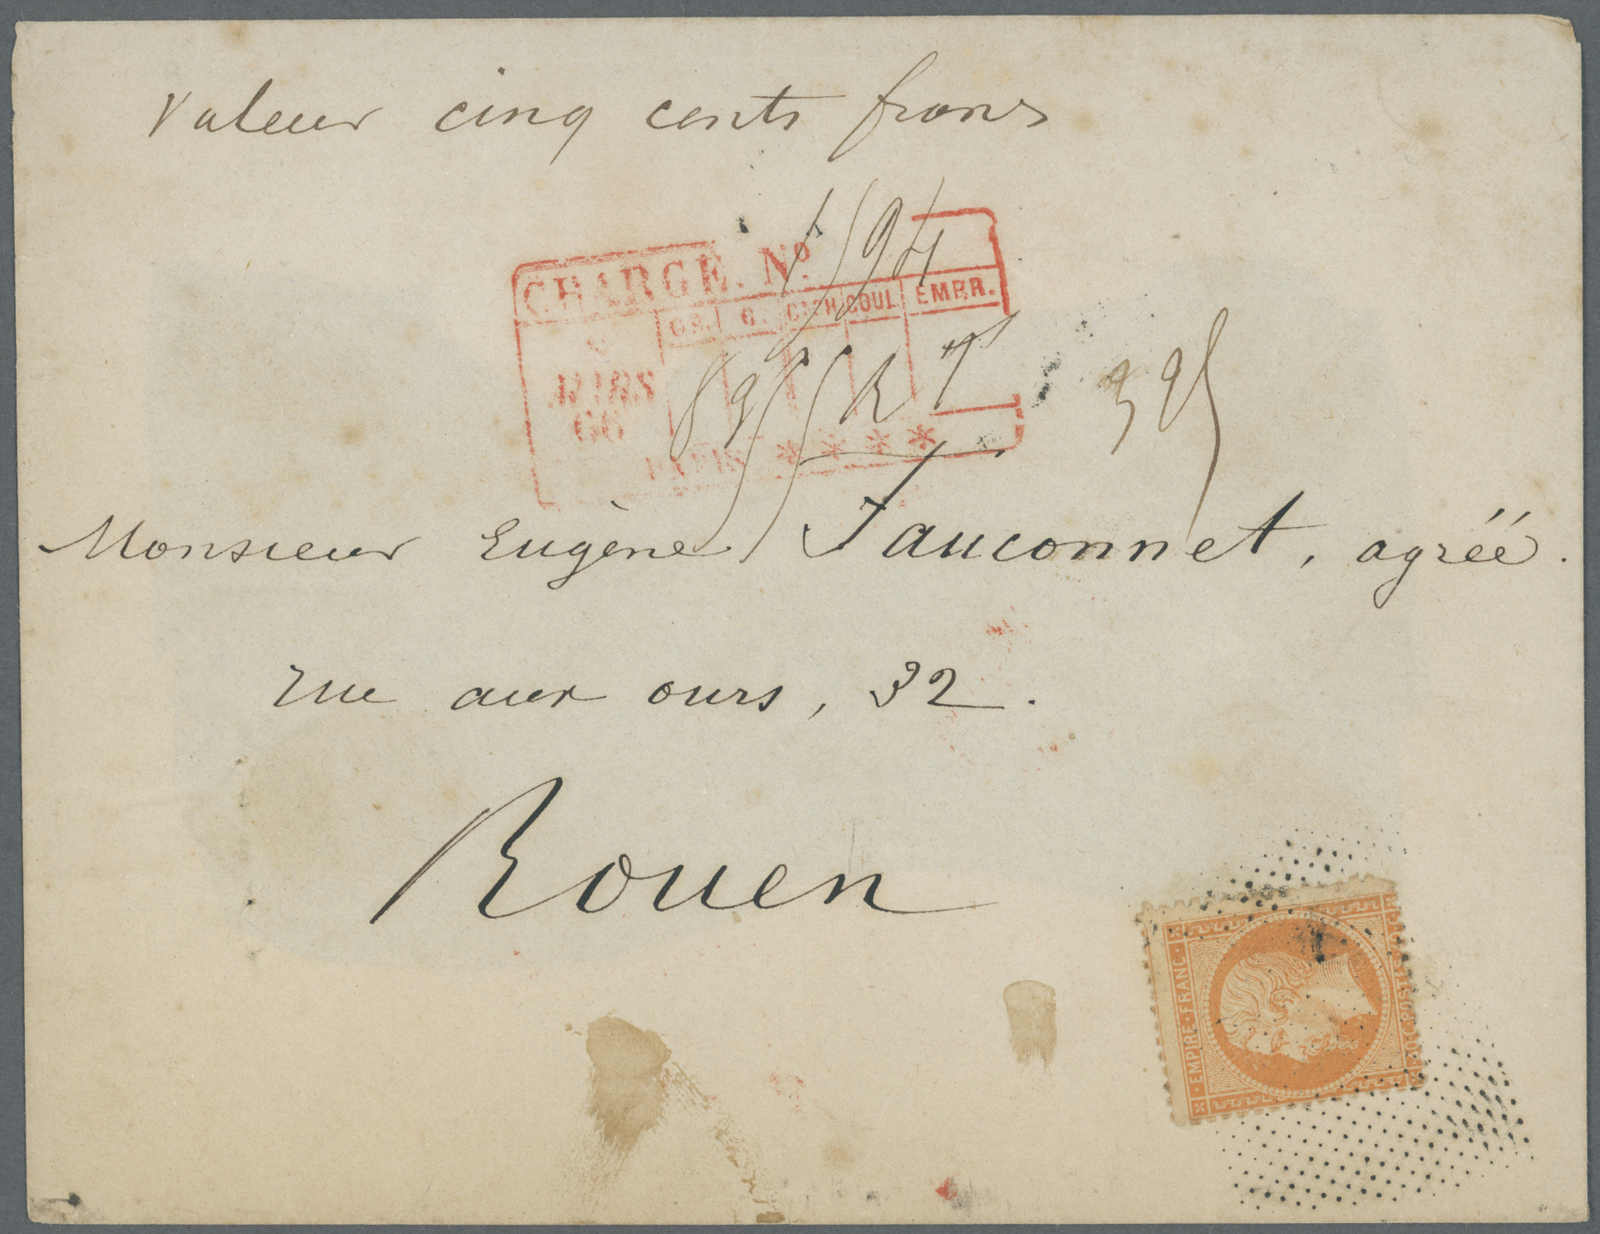 Valeur cinq cents francs
CHARGÉ. Nº 594
GR. C. CIRE COUL EMPR.
MARS
66
PARIS ****
Monsieur Eugène Fauconnet, agréé.
rue aux ours, 32.
Rouen
EMPIRE·FRANC·